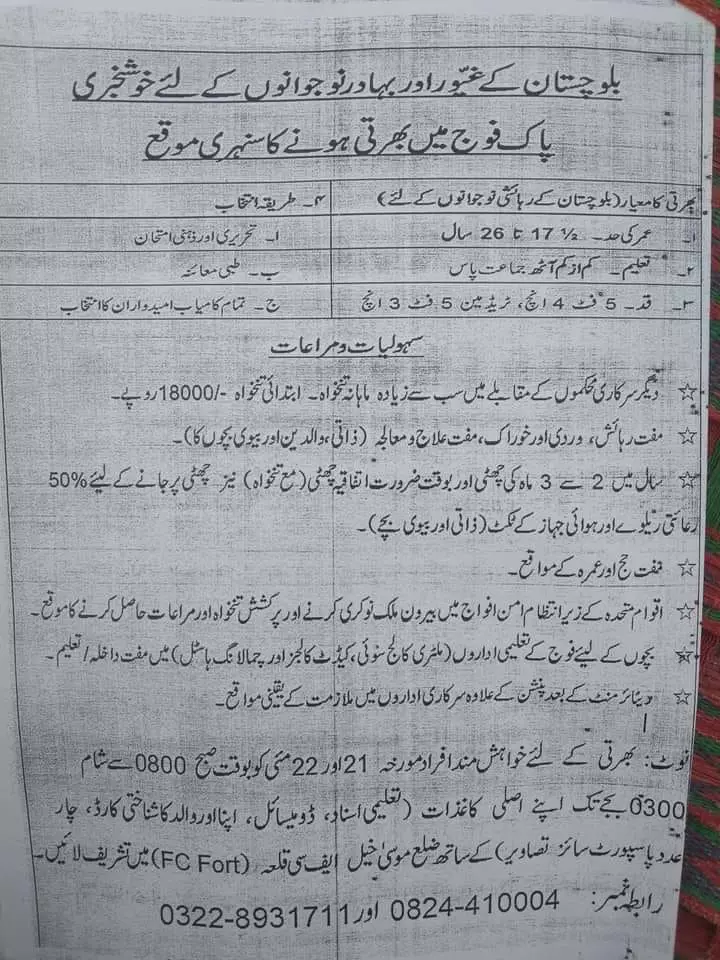 بلوچستان کے غیّور اور بہادر نوجوانوں کے لئے خوشخبری
پاک فوج میں بھرتی ہونے کا سنہری موقع
بھرتی کا معیار (بلوچستان کے رہائشی نوجوانوں کے لئے)
۱۔ عمر کی حد۔ 17 ½ تا 26 سال
۲۔ تعلیم۔ کم از کم آٹھ جماعت پاس
۳۔ قد۔ 5 فٹ 4 انچ، ٹریڈ مین 5 فٹ 3 انچ
۴۔ طریقہ انتخاب
ا۔ تحریری اور ذہنی امتحان
ب۔ طبی معائنہ
ج۔ تمام کامیاب امیدواران کا انتخاب
سہولیات و مراعات
☆ دیگر سرکاری محکموں کے مقابلے میں سب سے زیادہ ماہانہ تنخواہ۔ ابتدائی تنخواہ -/18000 روپے۔
☆ مفت رہائش، وردی اور خوراک، مفت علاج و معالجہ (ذاتی، والدین اور بیوی بچوں کا)۔
☆ سال میں 2 سے 3 ماہ کی چھٹی اور بوقت ضرورت اتفاقیہ چھٹی (مع تنخواہ) نیز چھٹی پر جانے کے لیئے 50%
رعائتی ریلوے اور ہوائی جہاز کے ٹکٹ (ذاتی اور بیوی بچے)۔
☆ مفت حج اور عمرہ کے مواقع۔
☆ اقوام متحدہ کے زیر انتظام امن افواج میں بیرون ملک نوکری کرنے اور پرکشش تنخواہ اور مراعات حاصل کرنے کا موقع۔
☆ بچوں کے لیئے فوج کے تعلیمی اداروں (ملٹری کالج سوئی، کیڈٹ کالجز اور چمالانگ ہاسٹل) میں مفت داخلہ / تعلیم۔
☆ ریٹائرمنٹ کے بعد پنشن کے علاوہ سرکاری اداروں میں ملازمت کے یقینی مواقع۔
نوٹ: بھرتی کے لئے خواہش مند افراد مورخہ 21 اور 22 مئی کو بوقت صبح 0800 سے شام
0300 بجے تک اپنے اصلی کاغذات (تعلیمی اسناد، ڈومیسائل، اپنا اور والد کا شناختی کارڈ، چار
عدد پاسپورٹ سائز تصاویر) کے ساتھ ضلع موسیٰ خیل ایف سی قلعہ (FC Fort) میں تشریف لائیں۔
رابطہ نمبر: 0824-410004 اور 0322-8931711